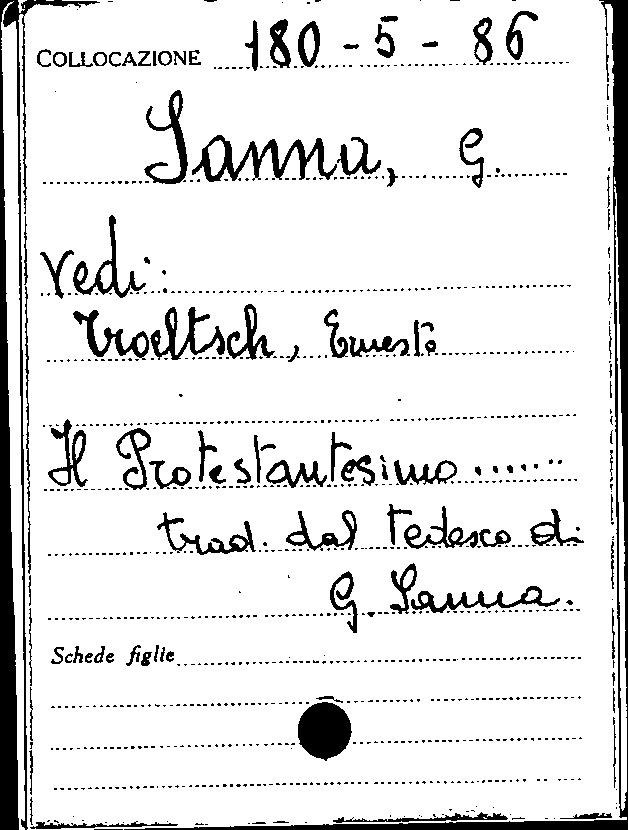 COLLOCAZIONE 180 - 5 - 86
Sanna, G.
Vedi:
Troeltsch, Ernesto
Il Protestantesimo .......
trad. dal tedesco di
G. Sanna.
Schede figlie